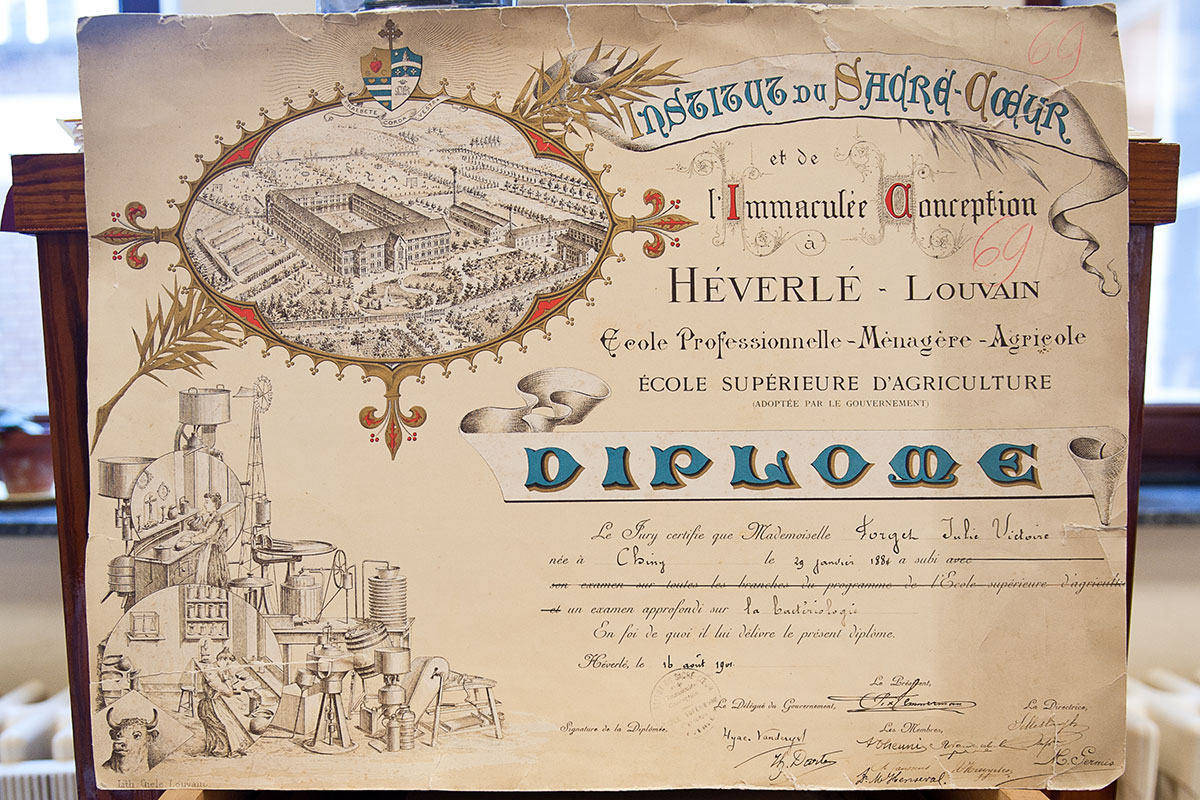 69
INSTITUT DU SACRÉ-CŒUR
et de
l'Immaculée Conception
à
69
HÉVERLÉ - LOUVAIN
Ecole Professionnelle - Ménagère - Agricole
ÉCOLE SUPÉRIEURE D'AGRICULTURE
(ADOPTÉE PAR LE GOUVERNEMENT)
DIPLOME
Le Jury certifie que Mademoiselle Forget Julie Victoire
née à Chiny le 29 janvier 1884 a subi avec
son examen sur toutes les branches du programme de l'Ecole supérieure d'agricult
et un examen approfondi sur la bactériologie
En foi de quoi il lui délivre le présent diplôme.
Héverlé, le 16 août 1901.
Le Président,
Le Délégué du Gouvernement,
La Directrice,
Signature de la Diplômée,
Les Membres,
Hyac. Vanderyst
M. Germis
Lith. Giele Louvain.